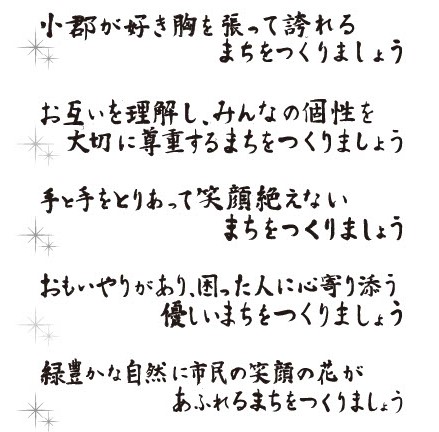 小郡が好き胸を張って誇れる
まちをつくりましょう
お互いを理解し、みんなの個性を
大切に尊重するまちをつくりましょう
手と手をとりあって笑顔絶えない
まちをつくりましょう
おもいやりがあり、困った人に心寄り添う
優しいまちをつくりましょう
緑豊かな自然に市民の笑顔の花が
あふれるまちをつくりましょう